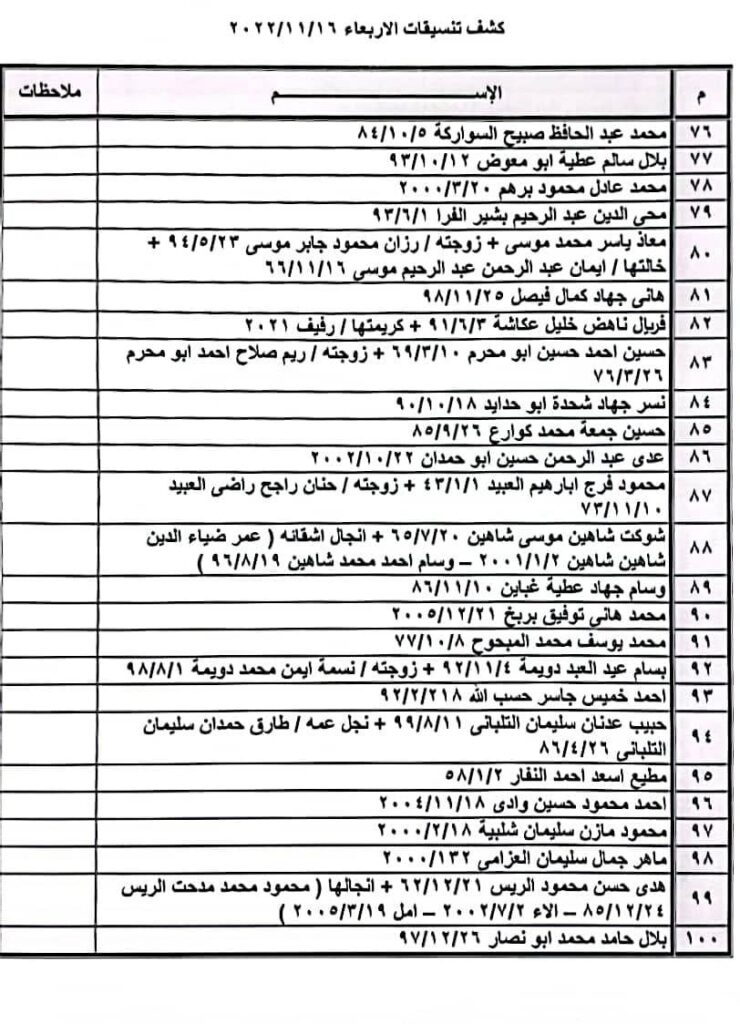 كشف تنسيقات الاربعاء ٢٠٢٢/١١/١٦
م الإســـــــــم ملاحظات
٧٦ محمد عبد الحافظ صبيح السواركة ٨٤/١٠/٥
٧٧ بلال سالم عطية ابو معوض ٩٣/١٠/١٢
٧٨ محمد عادل محمود برهم ٢٠٠٠/٣/٢٠
٧٩ محى الدين عبد الرحيم بشير الفرا ٩٣/٦/١
٨٠ معاذ ياسر محمد موسى + زوجته / رزان محمود جابر موسى ٩٤/٥/٢٣ +
خالتها / ايمان عبد الرحمن عبد الرحيم موسى ٦٦/١١/١٦
٨١ هانى جهاد كمال فيصل ٩٨/١١/٢٥
٨٢ فريال ناهض خليل عكاشة ٩١/٦/٣ + كريمتها / رفيف ٢٠٢١
٨٣ حسين احمد حسين ابو محرم ٦٩/٣/١٠ + زوجته / ريم صلاح احمد ابو محرم
٧٦/٣/٢٦
٨٤ نسر جهاد شحدة ابو حدايد ٩٠/١٠/١٨
٨٥ حسين جمعة محمد كوارع ٨٥/٩/٢٦
٨٦ عدى عبد الرحمن حسين ابو حمدان ٢٠٠٢/١٠/٢٢
٨٧ محمود فرج ابارهيم العبيد ٤٣/١/١ + زوجته / حنان راجح راضى العبيد
٧٣/١١/١٠
٨٨ شوكت شاهين موسى شاهين ٦٥/٧/٢٠ + انجال اشقائه ( عمر ضياء الدين
شاهين شاهين ٢٠٠١/١/٢ – وسام احمد محمد شاهين ٩٦/٨/١٩ )
٨٩ وسام جهاد عطية غباين ٨٦/١١/١٠
٩٠ محمد هانى توفيق بربخ ٢٠٠٥/١٢/٢١
٩١ محمد يوسف محمد المبحوح ٧٧/١٠/٨
٩٢ بسام عيد العبد دويمة ٩٢/١١/٤ + زوجته / نسمة ايمن محمد دويمة ٩٨/٨/١
٩٣ احمد خميس جاسر حسب الله ٩٢/٢/٢١٨
٩٤ حبيب عدنان سليمان التلبانى ٩٩/٨/١١ + نجل عمه / طارق حمدان سليمان
التلبانى ٨٦/٤/٢٦
٩٥ مطيع اسعد احمد النفار ٥٨/١/٢
٩٦ احمد محمود حسين وادى ٢٠٠٤/١١/١٨
٩٧ محمود مازن سليمان شلبية ٢٠٠٠/٢/١٨
٩٨ ماهر جمال سليمان العزامى ٢٠٠٠/١٣٢
٩٩ هدى حسن محمود الريس ٦٢/١٢/٢١ + انجالها ( محمود محمد مدحت الريس
٨٥/١٢/٢٤ – الاء ٢٠٠٢/٧/٢ – امل ٢٠٠٥/٣/١٩ )
١٠٠ بلال حامد محمد ابو نصار ٩٧/١٢/٢٦